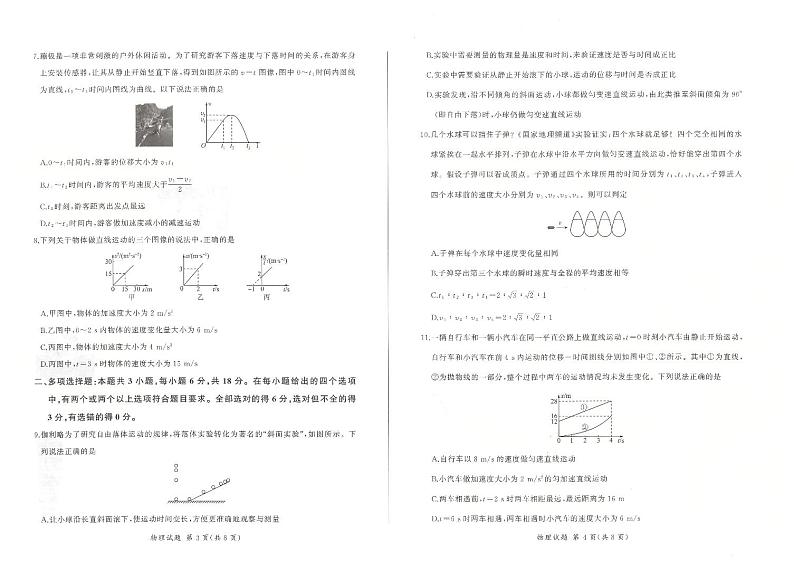 7.蹦极是一项非常刺激的户外休闲活动。为了研究游客下落速度与下落时间的关系,在游客身
上安装传感器,让其从静止开始竖直下落,得到如图所示的v-t图像,图中0~t₁时间内图线
为直线,t₁~t₂时间内图线为曲线。以下说法正确的是
v
v₂
v₁
O t₁ t₂ t
A.0~t₁时间内,游客的位移大小为v₁t₁
B.t₁~t₂时间内,游客的平均速度大于
2
C.t₂时刻,游客距离出发点最远
D.t₁~t₂时间内,游客做加速度减小的减速运动
8.下列关于物体做直线运动的三个图像的说法中,正确的是
v²/(m²·s⁻²)
30
15
0 15 30 x/m
甲
a/(m·s⁻²)
3
0 2 t/s
乙
/(m·s⁻¹)
2
-1 0 t/s
丙
A.甲图中,物体的加速度大小为2 m/s²
B.乙图中,0~2 s内物体的速度变化量大小为6 m/s
C.丙图中,物体的加速度大小为4 m/s²
D.丙图中,t=3 s时物体的速度大小为15 m/s
二、多项选择题:本题共3小题,每小题6分,共18分。在每小题给出的四个选项
中,有两个或两个以上选项符合题目要求。全部选对的得6分,选对但不全的得
3分,有选错的得0分。
9.伽利略为了研究自由落体运动的规律,将落体实验转化为著名的“斜面实验”,如图所示。下
列说法正确的是
A.让小球沿长直斜面滚下,使运动时间变长,方便更准确地观察与测量
物理试题 第3页(共8页)
B.实验中需要测量的物理量是速度和时间,来验证速度是否与时间成正比
C.实验中需要验证从静止开始滚下的小球,运动的位移与时间是否成正比
D.实验发现,沿不同倾角的斜面运动,小球都做匀变速直线运动,由此类推至斜面倾角为90°
(即自由下落)时,小球仍做匀变速直线运动
10.几个水球可以挡住子弹?《国家地理频道》实验证实:四个水球就足够!四个完全相同的水
球紧挨在一起水平排列,子弹在水球中沿水平方向做匀变速直线运动,恰好能穿出第四个水
球。假设子弹可以看成质点。子弹通过四个水球所用的时间分别为t₁、t₂、t₃、t₄,子弹进入
四个水球前的速度大小分别为v₁、v₂、v₃、v₄。则可以判定
A.子弹在每个水球中速度变化量相同
B.子弹穿出第三个水球的瞬时速度与全程的平均速度相等
C.t₁:t₂:t₃:t₄=2:√3:√2:1
D.v₁:v₂:v₃:v₄=2:√3:√2:1
11.一辆自行车和一辆小汽车在同一平直公路上做直线运动,t=0时刻小汽车由静止开始运动,
自行车和小汽车在前4 s内运动的位移一时间图线分别如图中①、②所示。其中①为直线,
②为抛物线的一部分,整个过程中两车的运动情况均未发生变化。下列说法正确的是
x/m
28
16
12
①
②
0 1 2 3 4 t/s
A.自行车以8 m/s的速度做匀速直线运动
B.小汽车做加速度大小为2 m/s²的匀加速直线运动
C.两车相遇前,t=2 s时两车相距最远,最远距离为16 m
D.t=6 s时两车相遇,两车相遇时小汽车的速度大小为6 m/s
物理试题 第4页(共8页)